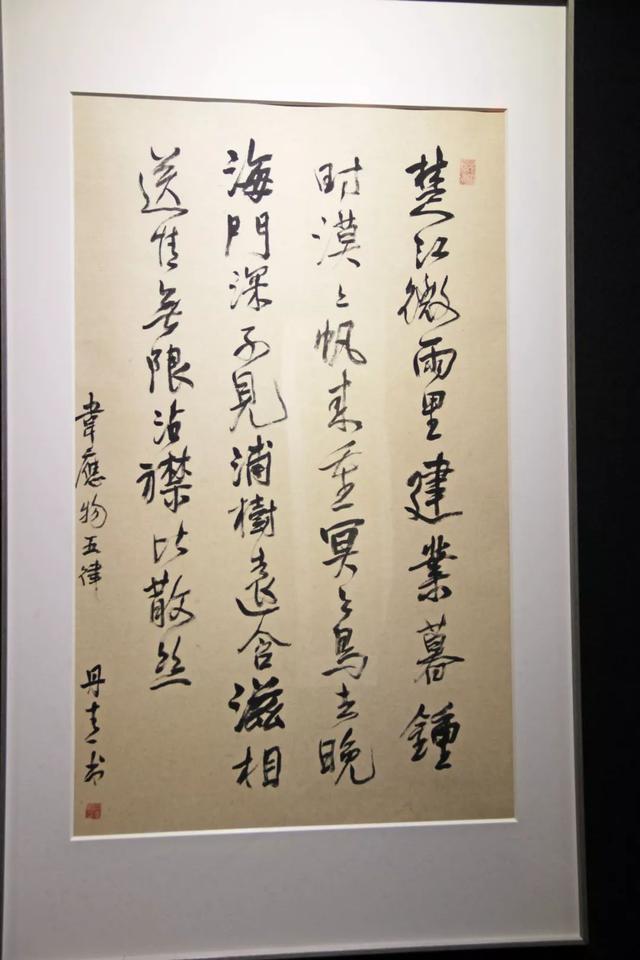 楚江微雨里建業暮鍾
时漠〻帆来重冥〻鳥去晚
海門深不見浦樹遠含滋相
送情無限沾襟比散丝
韋應物五律 丹青书